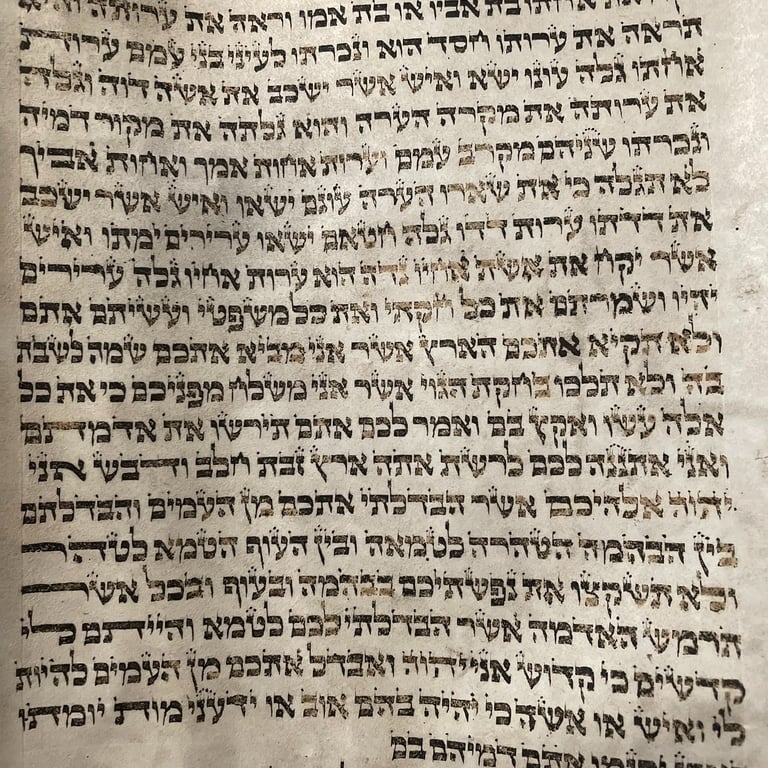 את אחתו בת אביו או בת אמו וראה את ערותה והיא
תראה את ערותו חסד הוא ונכרתו לעיני בני עמם ערות
אחתו גלה עונו ישא ואיש אשר ישכב את אשה דוה וגלה
את ערותה את מקרה הערה והוא גלתה את מקור דמיה
ונכרתו שניהם מקרב עמם וערות אחות אמך ואחות אביך
לא תגלה כי את שארו הערה עונם ישאו ואיש אשר ישכב
את דדתו ערות דדו גלה חטאם ישאו ערירים ימתו ואיש
אשר יקח את אשת אחיו נדה הוא ערות אחיו גלה ערירים
יהיו ושמרתם את כל חקתי ואת כל משפטי ועשיתם אתם
ולא תקיא אתכם הארץ אשר אני מביא אתכם שמה לשבת
בה ולא תלכו בחקת הגוי אשר אני משלח מפניכם כי את כל
אלה עשו ואקץ בם ואמר לכם אתם תירשו את אדמתם
ואני אתננה לכם לרשת אתה ארץ זבת חלב ודבש אני
יהוה אלהיכם אשר הבדלתי אתכם מן העמים והבדלתם
בין הבהמה הטהרה לטמאה ובין העוף הטמא לטהר
ולא תשקצו את נפשתיכם בבהמה ובעוף ובכל אשר
תרמש האדמה אשר הבדלתי לכם לטמא והייתם לי
קדשים כי קדוש אני יהוה ואבדל אתכם מן העמים להיות
לי ואיש או אשה כי יהיה בהם אוב או ידעני מות יומתו
אתם דמיהם בם